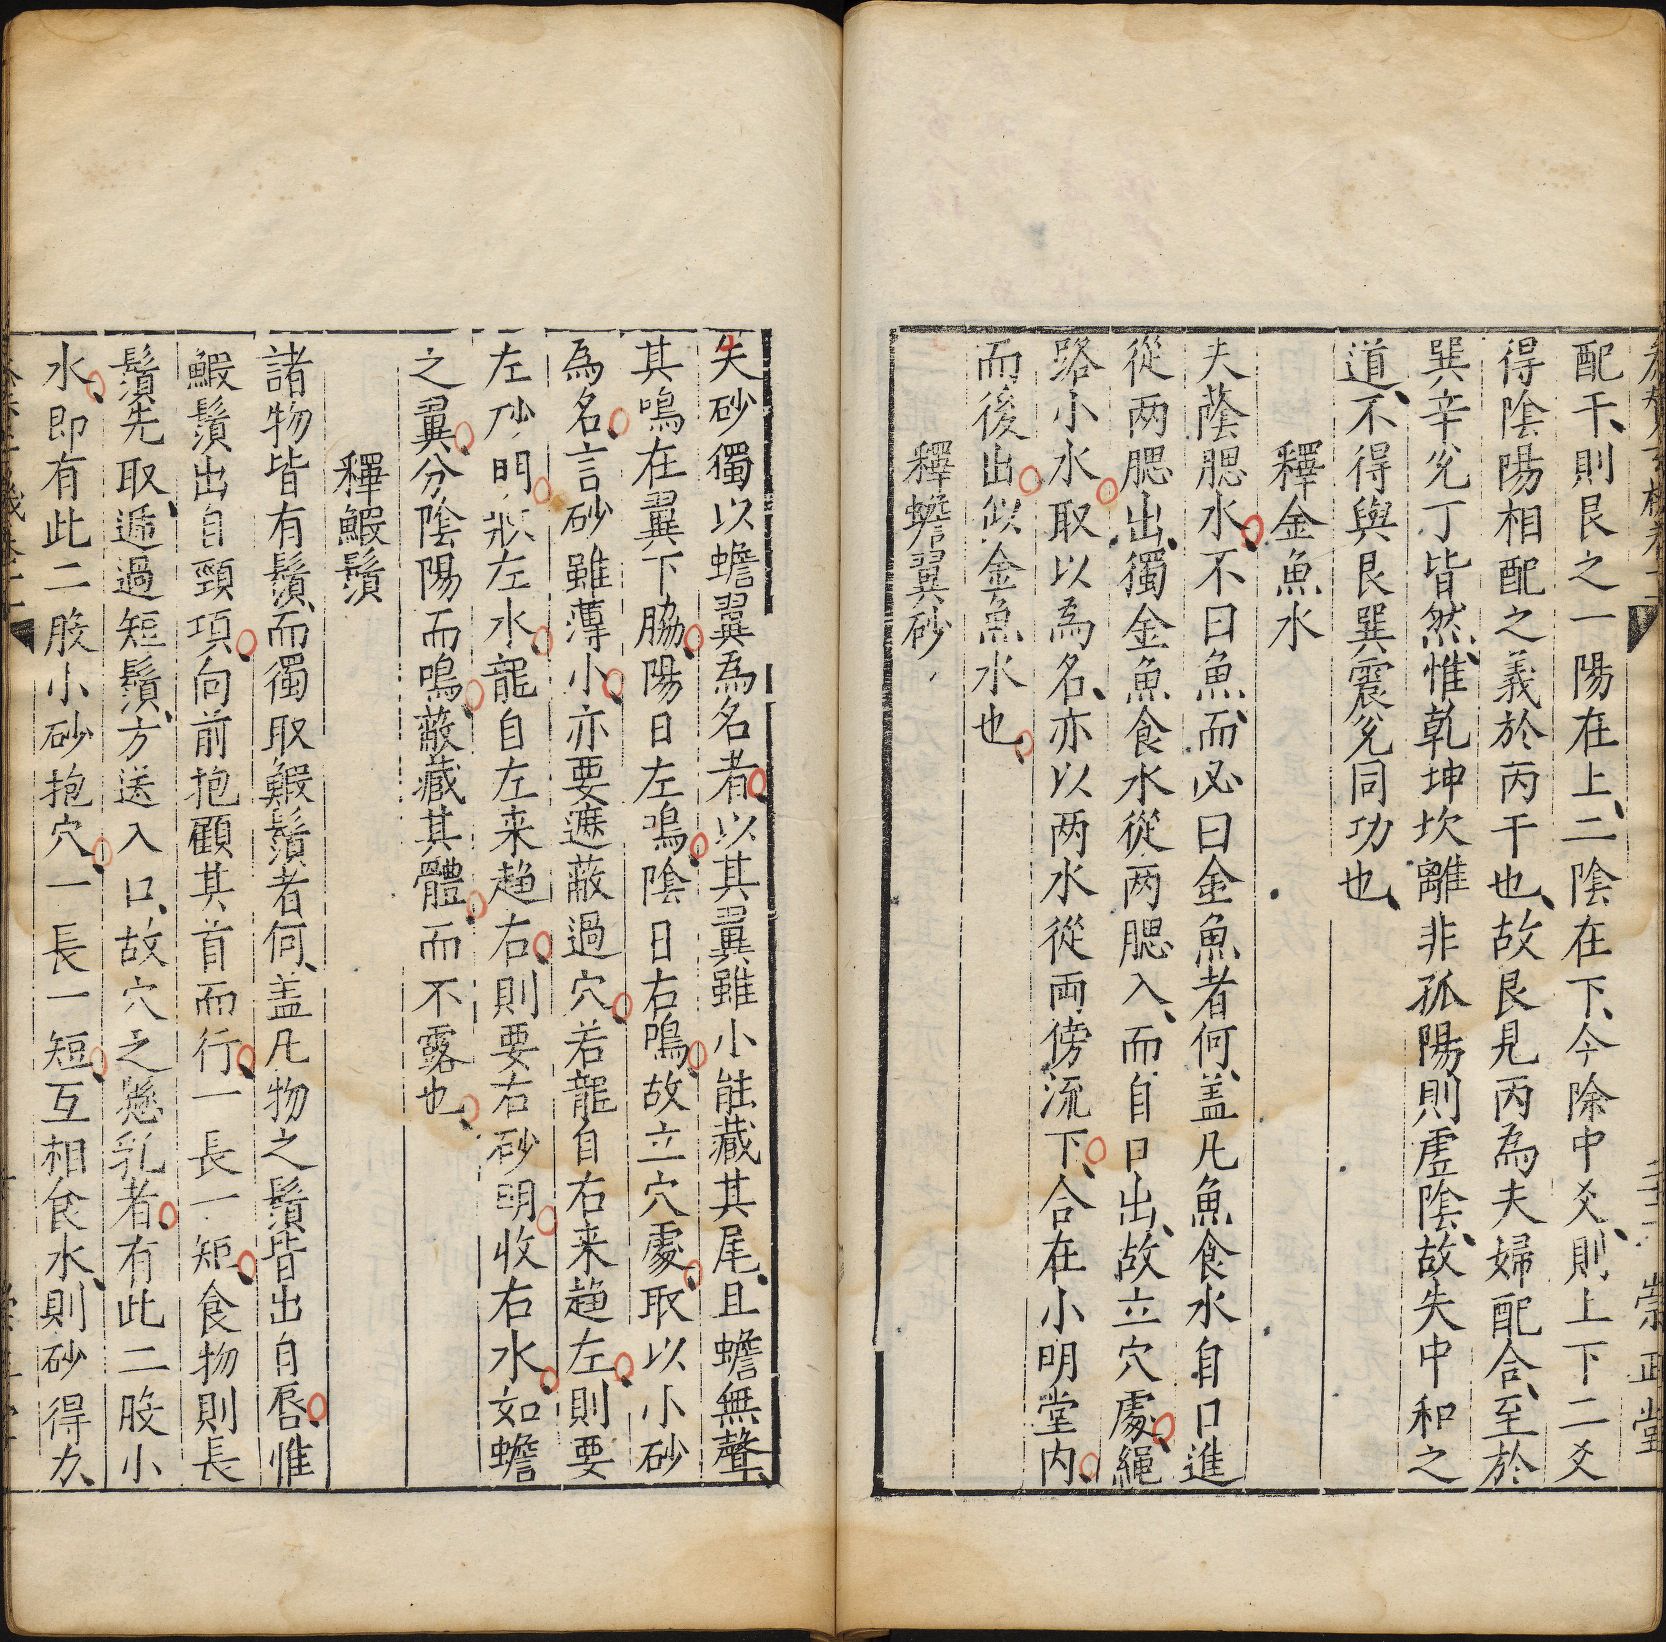 配干、則艮之一陽在上、二陰在下、今除中爻、則上下二爻
得陰陽相配之義於丙干也、故艮見丙為夫婦配合、至於
巽辛兌丁皆然、惟乾坤坎離非孤陽則虛陰、故失中和之
道、不得與艮巽震兌同功也、
釋金魚水
夫蔭腮水不曰魚、而必曰金魚者何、盖凡魚食水自口進
從两腮出、獨金魚食水從两腮入、而自口出、故立穴處、繩
路小水取以為名、亦以两水從両傍流下、合在小明堂内、
而後出似金魚水也、
釋蟾翼砂
夫砂獨以蟾翼為名者、以其翼雖小能藏其尾、且蟾無聲、
其鳴在翼下脇、陽日左鳴、陰日右鳴、故立穴處、取以小砂
為名、言砂雖薄小、亦要遮蔽過穴、若龍自右来趋左、則要
左砂明、收左水、龍自左来趋右、則要右砂明、收右水、如蟾
之翼、分陰陽而鳴、蔽藏其體、而不露也、
釋鰕鬚
諸物皆有鬚、而獨取鰕鬚者何、盖凡物之鬚皆出自唇、惟
鰕鬚出自頸項、向前抱顧其首而行、一長一短、食物則長
鬚先取、遞過短鬚、方送入口、故穴之懸乳者、有此二股小
水、即有此二股小砂抱穴、一長一短、互相食水、則砂得力、
崇正堂